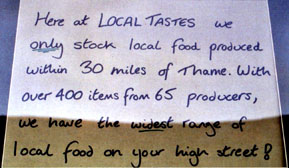 Here at LOCAL TASTES we
only stock local food produced
within 30 miles of Thame. With
over 400 items from 65 producers,
we have the widest range of
local food on your high street!